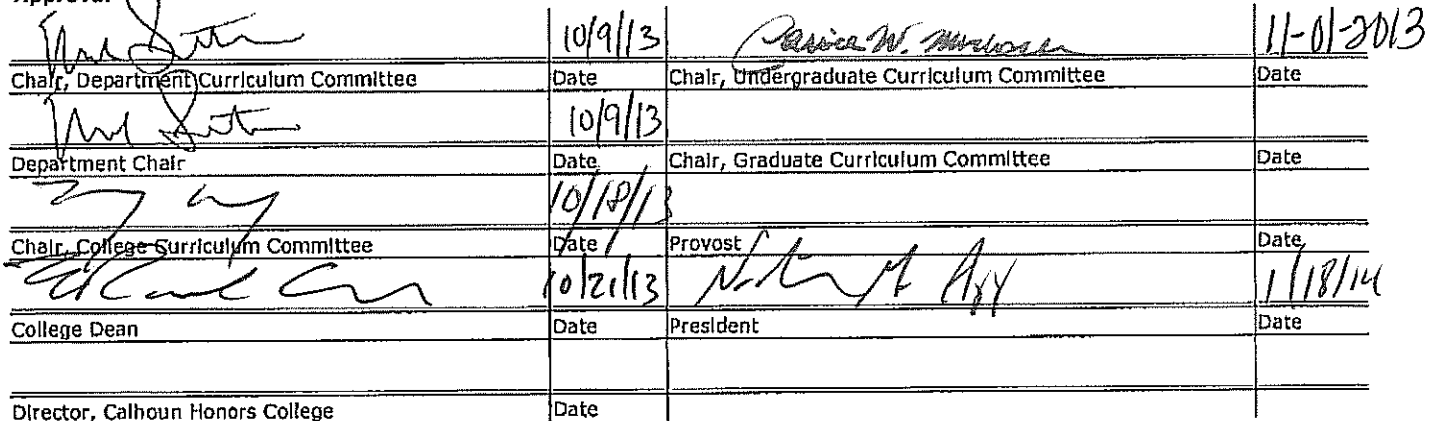 Approval
10/9/13 Janice W. 11-01-2013
Chair, Department Curriculum Committee Date Chair, Undergraduate Curriculum Committee Date
10/9/13
Department Chair Date Chair, Graduate Curriculum Committee Date
10/18/13
Chair, College Curriculum Committee Date Provost Date
10/21/13 1/18/14
College Dean Date President Date
Director, Calhoun Honors College Date